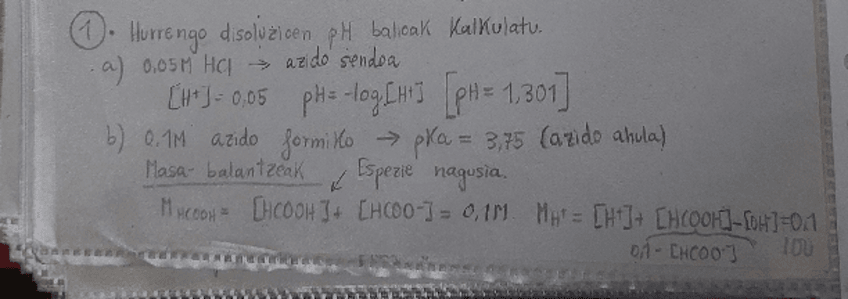 1. Hurrengo disoluzioen pH balioak kalkulatu.
a) 0,05M HCl → azido sendoa
[H+] = 0,05 pH = -log[H+] [pH = 1,301]
b) 0.1M azido formiko → pKa = 3,75 (azido ahula)
Masa-balantzeak ↙ Espezie nagusia.
M HCOOH = [HCOOH] + [HCOO-] = 0,1M M H+ = [H+] + [HCOOH] - [OH-] = 0.1
0,1 - [HCOO-]